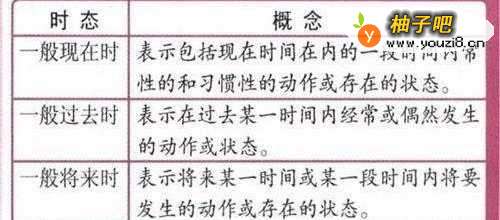 时 态 概 念
柚子吧
www.youzi8.cn
一般现在时 表示包括现在时间在内的一段时间内常
性的和习惯性的动作或存在的状态。
一般过去时 表示在过去某一时间内经常或偶然发生
的动作或状态。
一般将来时 表示将来某一时间或某一段时间内将要
发生的动作或存在的状态。